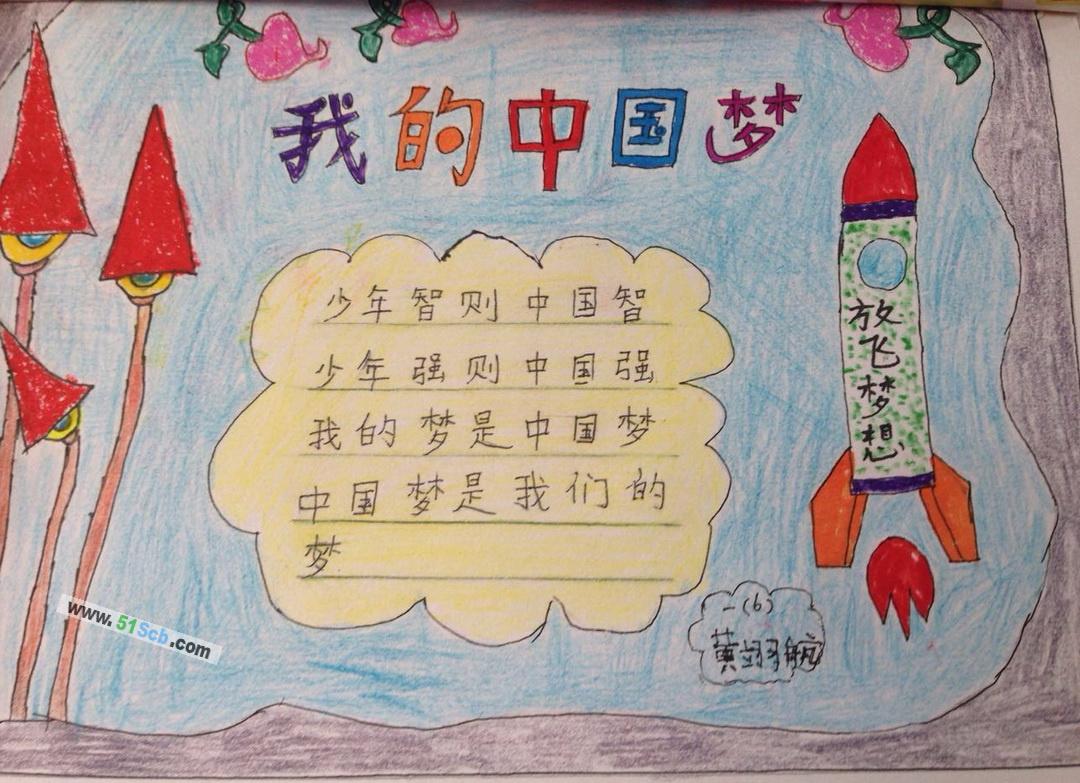 我的中国梦
少年智则中国智
少年强则中国强
我的梦是中国梦
中国梦是我们的
梦
放飞梦想
一(6)
黄翊航
www.51Scb.com